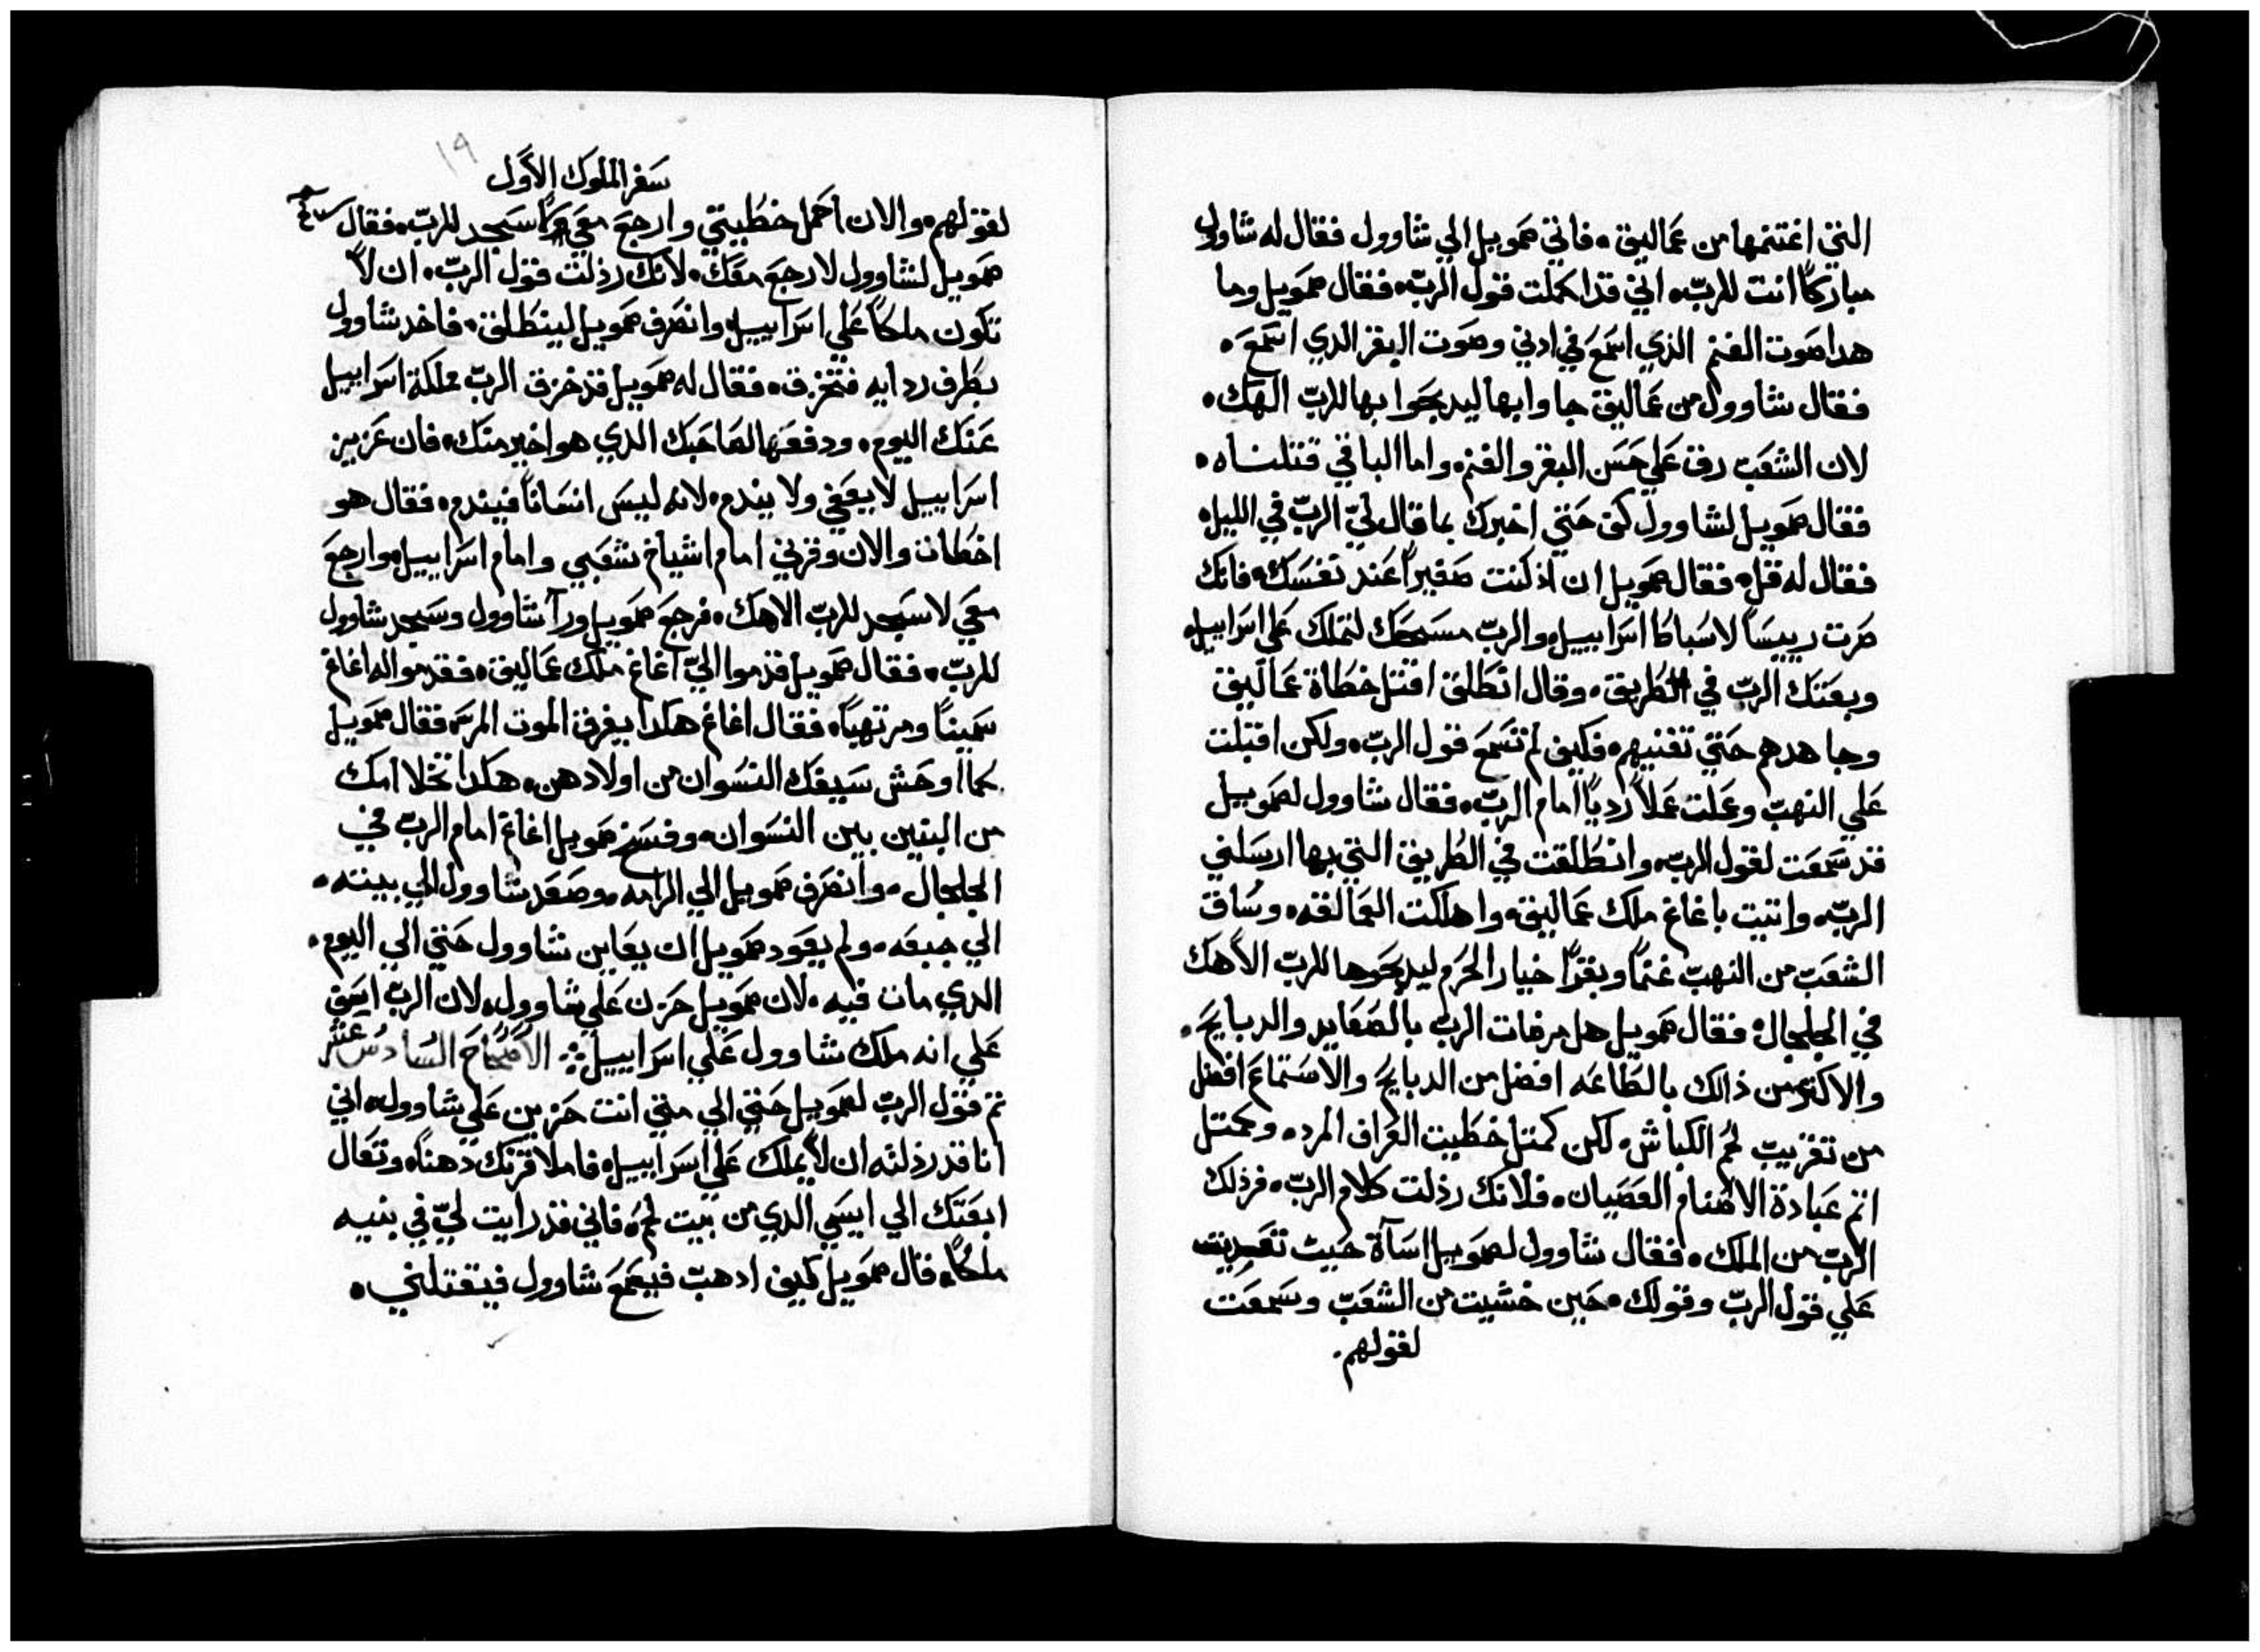 التي اغتنمها من عماليق • فاتي صمويل الي شاوول فقال له شاوول
مباركاً انت للرب • اني قد اكملت قول الرب • فقال صمويل وما
هدا صوت الغنم الذي اسمع في ادني وصوت البقر الدي اسمع •
فقال شاوول من عماليق جاوا بها ليدبحوا بها للرب الهك •
لان الشعب رق علي حسن البقر والغنم واما الباقي قتلناه •
فقال صمويل لشاوول كف حتي اخبرك بما قال ليّ الرب في الليل •
فقال له قل • فقال صمويل ان اذ كنت صغيراً عند نفسك • فانك
صرت رييساً لاسباط اسراييل والرب مسحك لتملك علي اسراييل •
وبعتك الرب في الطريق • وقال انطلق اقتل خطاة عماليق
وجاهدهم حتي تفنيهم • فكيف لم تسمع قول الرب • ولكن اقبلت
علي النهب وعملت عملاً ردياً امام الرب • فقال شاوول لصمويل
قد سمعت لقول الرب • وانطلقت في الطريق التي بها ارسلني
الرب • واتيت باغاغ ملك عماليق • واهلكت العمالقه • وساق
الشعب من النهب غنماً وبقراً خيار الحرم ليدبحوها للرب الاهك
في الجلجال • فقال صمويل هل مرضات الرب بالصعايد والدبايح •
والاكتر من ذالك بالطاعه افضل من الدبايح والاستماع افضل
من تقريب لحم الكباش • لكن كمتل خطيت العراف المرده • وكمتل
اتم عبادة الاصنام العصيان • فلانك رذلت كلام الرب • فرذلك
الرب من الملك • فقال شاوول لصمويل اسآة حيت تعديت
علي قول الرب وقولك • حين خشيت من الشعب وسمعت
لقولهم •
١٩
سفر الملوك الاول
لقولهم • والان احمل خطيتي وارجع معي اسجد للرب • فقال
صمويل لشاوول لا ارجع معك • لانك رذلت قول الرب • ان لا
تكون ملكاً علي اسراييل • وانصرف صمويل لينطلق • فاخد شاوول
بطرف ردايه فتخزق • فقال له صمويل قد خزق الرب مملكة اسراييل
عنك اليوم • ودفعها لصاحبك الدي هو اخير منك • فان عزيز
اسراييل لا يعفي ولا يندم • لانه ليس انساناً فيندم • فقال هو
اخطات والان وقرني امام اشياخ شعبي وامام اسراييل • وارجع
معي لاسجد للرب الاهك • فرجع صمويل ورآ شاوول وسجد شاوول
للرب • فقال صمويل قدموا اليّ اغاغ ملك عماليق • فقدمو اله اغاغ
سميناً ومرتهباً • فقال اغاغ هكدا يفرق الموت المر • فقال صمويل
كما اوحش سيفك النسوان من اولادهن • هكدا تخلا امك
من البنين بين النسوان • وفسخ صمويل اغاغ امام الرب في
الجلجال • وانصرف صمويل الي الرامه • وصعد شاوول الي بيته •
الي جبعه • ولم يعود صمويل ان يعاين شاوول حتي الي اليوم •
الدي مات فيه • لان صمويل حزن علي شاوول • لان الرب اسف
علي انه ملك شاوول علي اسراييل الاصحاح السادس عشر
تم قول الرب لصمويل حتي الي متي انت حزين علي شاوول • اني
انا قد رذلته ان لا يملك علي اسراييل • فاملا قرنك دهناً • وتعال
ابعتك الي ايسي الدي من بيت لحم • فاني قد رايت ليّ في بنيه
ملكاً • قال صمويل كيف ادهب فيسمع شاوول فيقتلني •